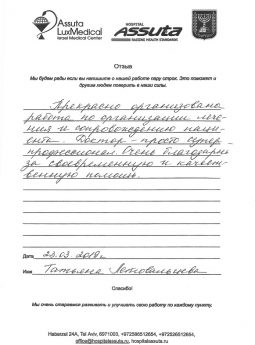 Assuta
LuxMedical
Israel Medical Center
HOSPITAL
ASSUTA
RAISING HEALTH STANDARDS
Отзыв
Мы будем рады если вы напишите о нашей работе пару строк. Это поможет и
другим людям поверить в наши силы.
Прекрасно организована
работа по организации лече-
ния и сопровождению паци-
ента. Доктор - просто супер
профессионал. Очень благодарны
за своевременную и качест-
венную помощь.
Дата 23.03.2018г.
Имя Татьяна
Спасибо!
Мы очень стараемся развивать и улучшить свою работу по каждому пункту.
Habarzel 24A, Tel Aviv, 6971003, +972586512654, +972526512654,
office@hospitalassuta.ru, hospitalassuta.ru